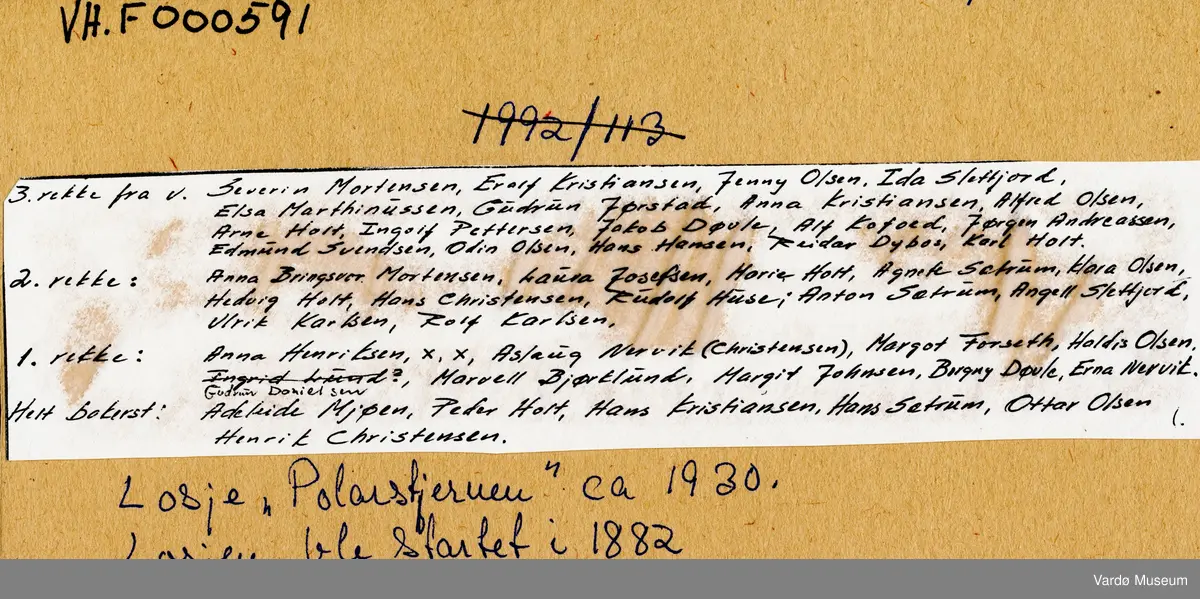 VH.F000591
1992/113
3. rekke fra v. Severin Mortensen, Erolf Kristiansen, Jenny Olsen, Ida Slettjord,
Elsa Marthinussen, Gudrun Jørstad, Anna Kristiansen, Alfred Olsen,
Arne Holt, Ingolf Pettersen, Jakob Døvle, Alf Kofoed, Jørgen Andreassen,
Edmund Svendsen, Odin Olsen, Hans Hansen, Reidar Dybos, Karl Holt.
2. rekke: Anna Bringsvor Mortensen, Laura Josefsen, Marie Holt, Agnete Sætrum, Klara Olsen,
Hedvig Holt, Hans Christensen, Rudolf Huse, Anton Sætrum, Angell Slettjord,
Ulrik Karlsen, Rolf Karlsen.
1. rekke: Anna Henriksen, x, x, Aslaug Nervik (Christensen), Margot Forseth, Haldis Olsen,
Ingrid Lund?, Marvell Bjørklund, Margit Johnsen, Bergny Døvle, Erna Nervik.
Gudrun Danielsen
Helt bakerst: Adeleide Mjøen, Peder Holt, Hans Kristiansen, Hans Sætrum, Ottar Olsen
Henrik Christensen.
Losje „Polarstjernen" ca 1930.
Losjen ble startet i 1882
Vardø Museum